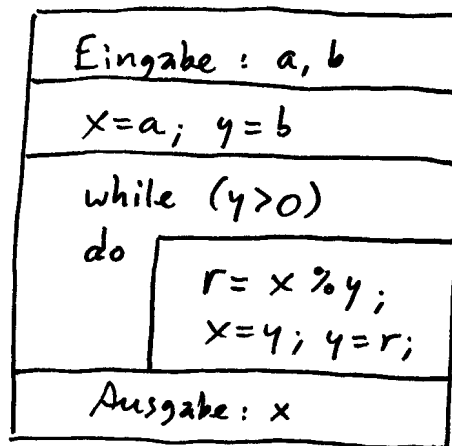 Eingabe : a, b
x=a; y=b
while (y>0)
do
r= x %y;
x=y; y=r;
Ausgabe: x